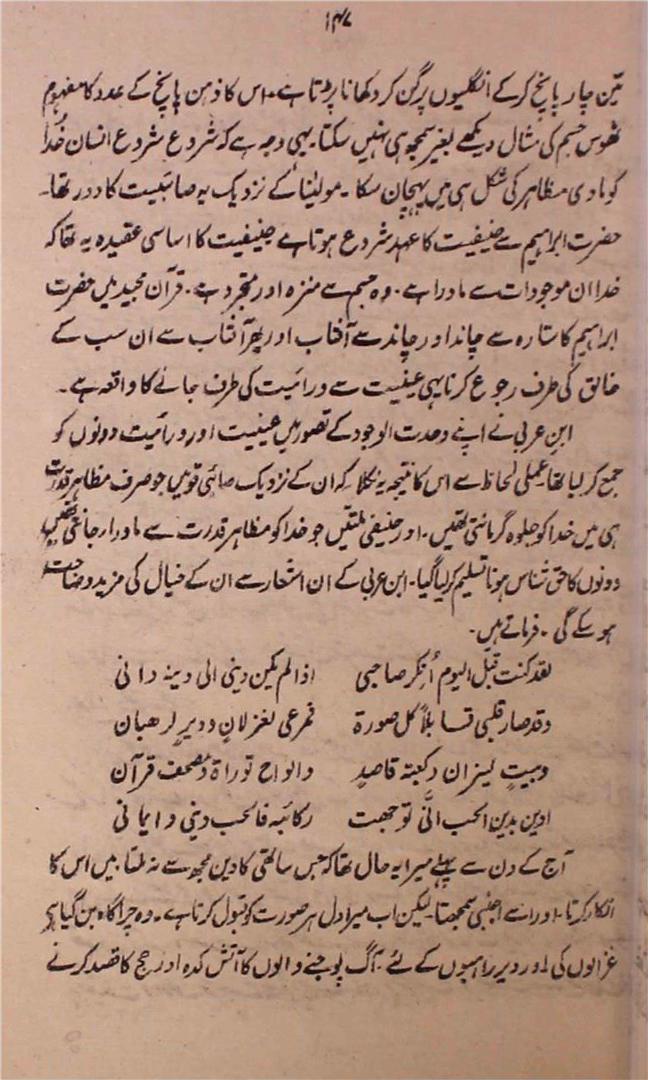 ۱۴۷
تین چار پانچ کرکے انگلیوں پر گن کر دکھانا پڑتا ہے۔ اس کا ذہن پانچ کے عدد کا مفہوم
ٹھوس جسم کی مثال دیکھے بغیر سمجھ ہی نہیں سکتا۔ یہی وجہ ہے کہ شروع شروع انسان خدا
کو مادی مظاہر کی شکل ہی میں پہچان سکا۔ مولینٰا کے نزدیک یہ صابئیت کا دور تھا۔
حضرت ابراہیم سے حنیفیت کا عہد شروع ہوتا ہے حنیفیت کا اساسی عقیدہ یہ تھا کہ
خدا ان موجودات سے ماورا ہے۔ وہ جسم سے منزہ اور متجرد ہے۔ قرآن مجید میں حضرت
ابراہیم کا ستارہ سے چاند اور چاند سے آفتاب اور پھر آفتاب سے ان سب کے
خالق کی طرف رجوع کرنا یہی عینیت سے ورائیت کی طرف جانے کا واقعہ ہے۔
ابن عربی نے اپنے وحدت الوجود کے تصور میں عینیت اور ورائیت دونوں کو
جمع کر لیا تھا۔ عملی لحاظ سے اس کا نتیجہ یہ نکلا کہ ان کے نزدیک صابئی قومیں جو صرف مظاہر قدرت
ہی میں خدا کو جلوہ گر مانتی تھیں۔ اور حنیفی ملتیں جو خدا کو مظاہر قدرت سے ماورا جانتی تھیں
دونوں کا حق شناس ہونا تسلیم کر لیا گیا۔ ابن عربی کے ان اشعار سے ان کے خیال کی مزید وضاحت
ہو سکے گی۔ فرماتے ہیں۔
لقد کنت قبل الیوم اُنکر صاحبی اذا لم یکن دینی الی دینہ دانی
وقد صار قلبی قابلاً کل صورة فمرعی لغزلانٍ و دیر لرھبان
وبیت لنیران وکعبتہ قاصدٍ والواح توراة ومصحف قرآن
ادین بدین الحب انّٰی توجھت رکائبہ فالحب دینی و ایمانی
آج کے دن سے پہلے میرا یہ حال تھا کہ جس ساتھی کا دین مجھ سے نہ ملتا میں اس کا
انکار کرتا۔ اور اسے اجنبی سمجھتا۔ لیکن اب میرا دل ہر صورت کو قبول کرتا ہے۔ وہ چراگاہ بن گیا ہے
غزالوں کی اور دیر راہبوں کے لئے۔ آگ پوجنے والوں کا آتش کدہ اور حج کا قصد کرنے